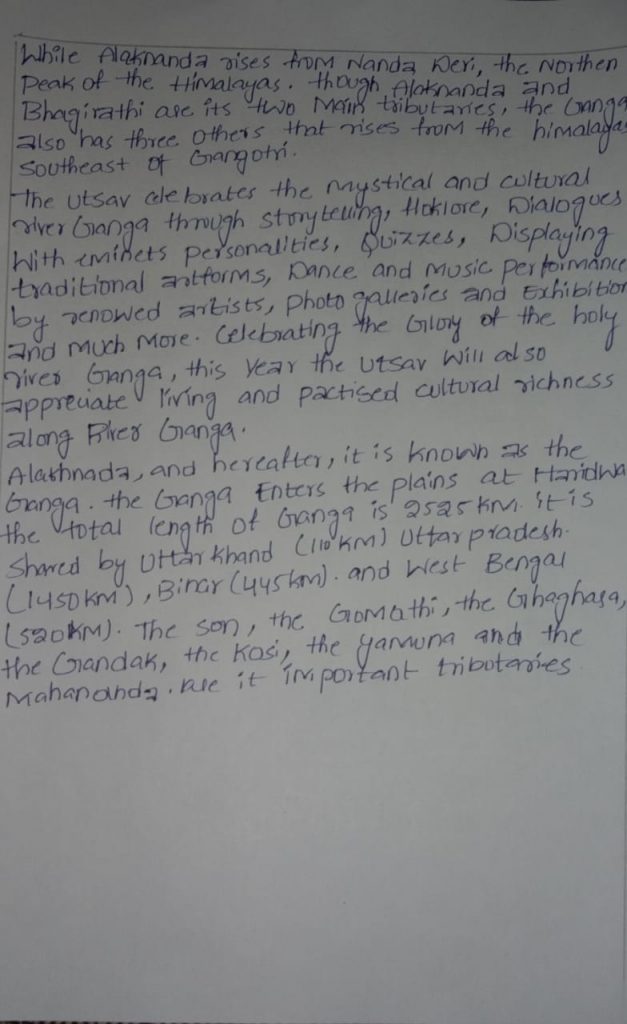 While Alaknanda rises from Nanda Devi, the Northen
Peak of the Himalayas. though Alaknanda and
Bhagirathi are its two Main tributaries, the Ganga
also has three others that rises from the himalayas
southeast of Gangotri.
The utsav celebrates the mystical and cultural
river Ganga through storytelling, floklore, Dialogues
With eminets personalities, Quizzes, Displaying
traditional artforms, Dance and music performance
by renowed artists, photo galleries and Exhibition
and much more. Celebrating the Glory of the holy
river Ganga, this Year the utsav will also
appreciate living and pactised cultural richness
along River Ganga.
Alakhnada, and hereafter, it is known as the
Ganga. the Ganga Enters the plains at Haridwa
the total length of Ganga is 2525 KM. it is
Shared by Uttarkhand (110 KM) Uttar pradesh.
(1450 KM), Bihar (445 km). and West Bengal
(520KM). The son, the Gomathi, the Ghaghara,
the Gandak, the Kosi, the yamuna and the
Mahananda. are it important tributaries